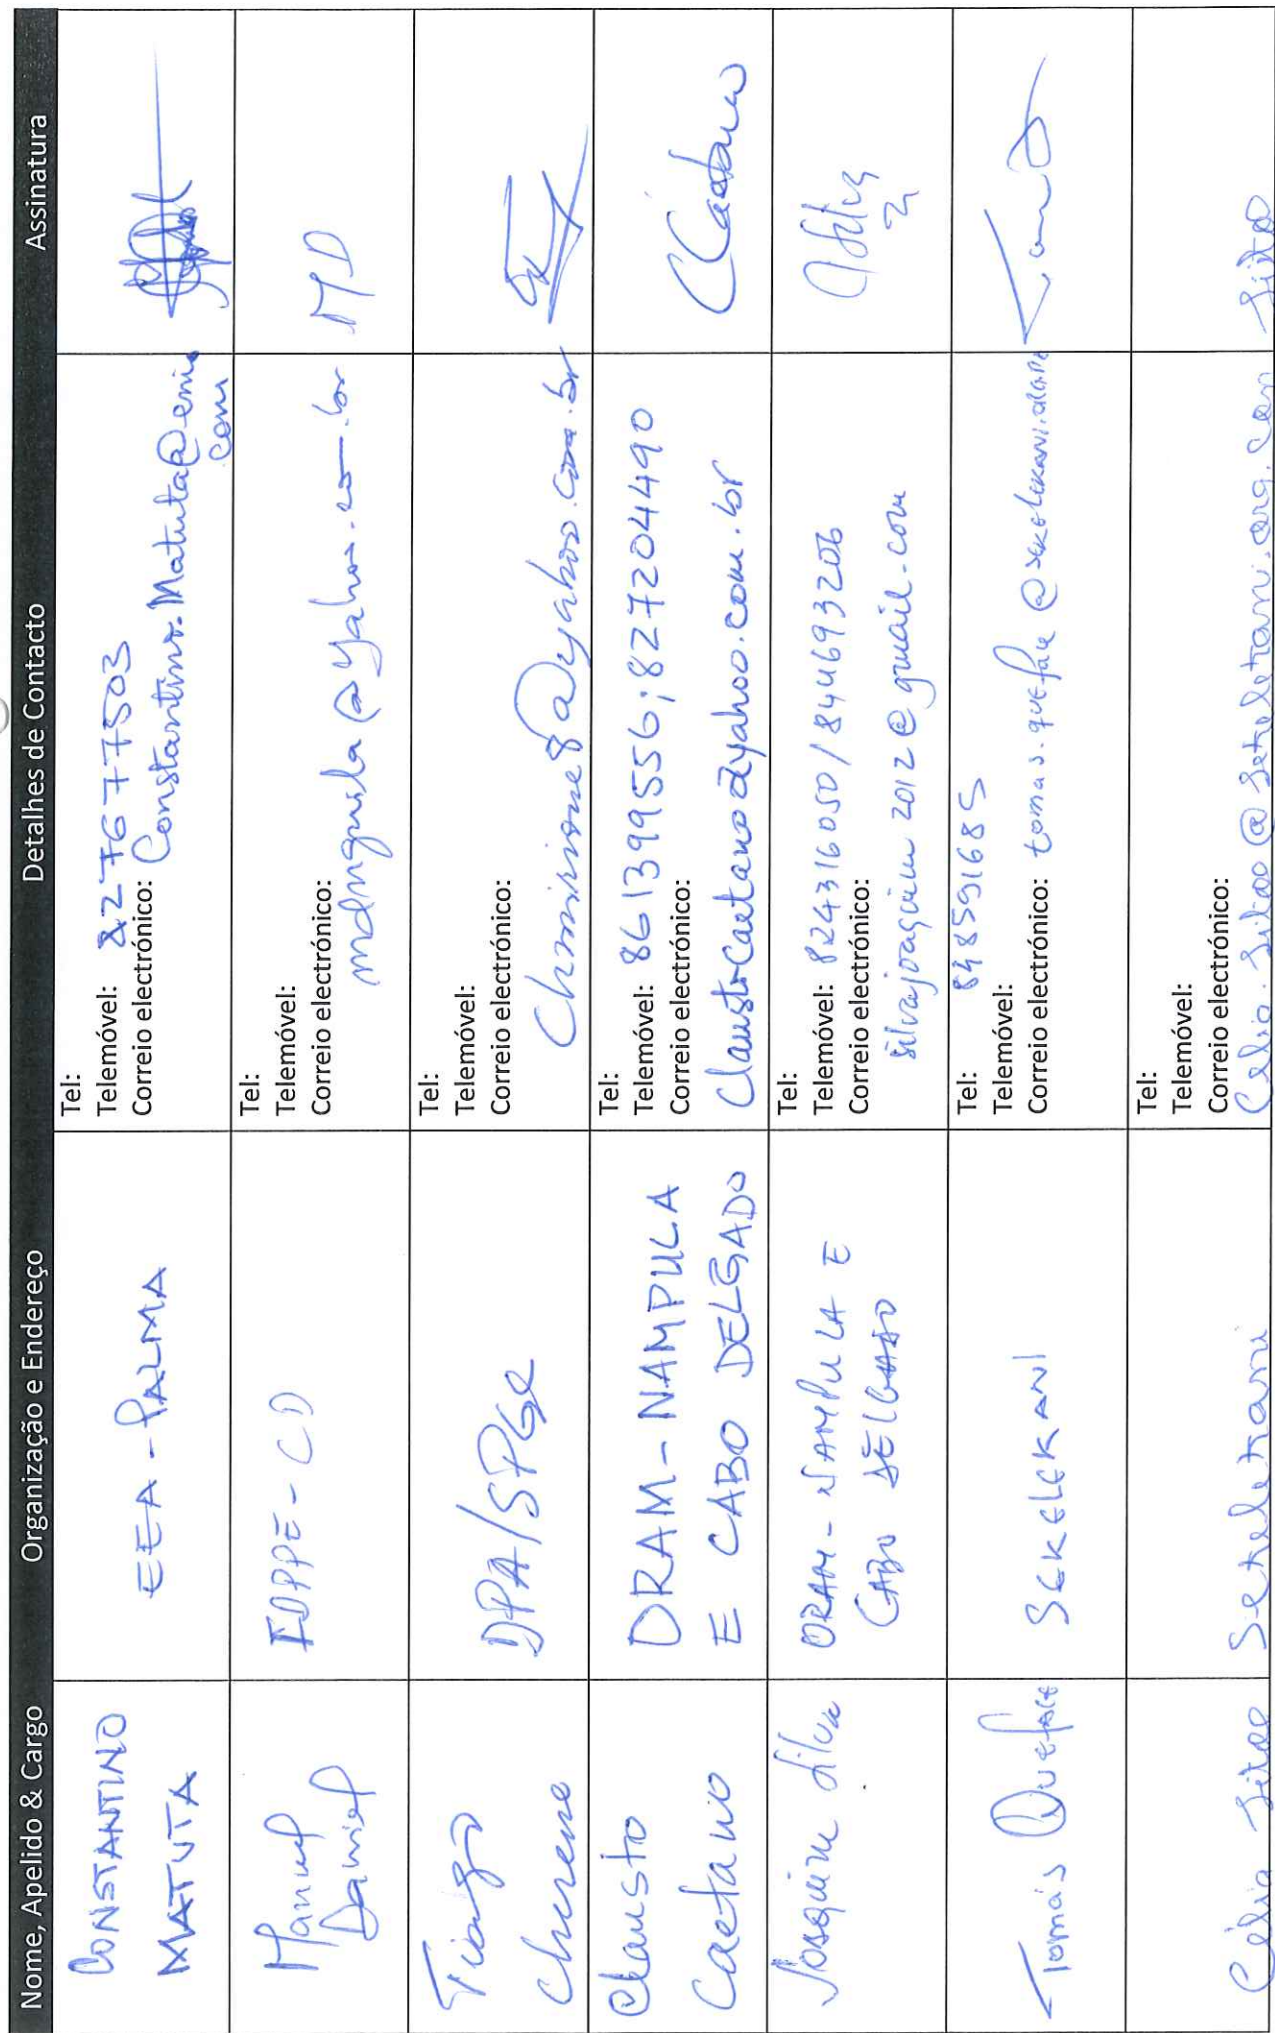 Nome, Apelido & Cargo Organização e Endereço Detalhes de Contacto Assinatura
CONSTANTINO
MATUTA
EEA - PALMA
Tel:
Telemóvel: 827677503
Correio electrónico: Constantino.Matuta@eni.
com
Manuel
Daniel
IDPPE - CD
Tel:
Telemóvel:
Correio electrónico:
MD
Tiago
DPA/SPGC
Tel:
Telemóvel:
Correio electrónico:
Clausto
Caetano
DRAM-NAMPULA
E CABO DELGADO
Tel:
Telemóvel: 861399556; 827204490
Correio electrónico:
Claustocaetano@yahoo.com.br
CCaetano
Joaquim Silva
DRAM - NAMPULA E
CABO DELGADO
Tel:
Telemóvel: 824316050 / 844693206
Correio electrónico:
silvajoaquim2012@gmail.com
JSilva
Tomás Queface
SEKELEKANI
Tel: 848591685
Telemóvel:
Correio electrónico: tomas.queface@
Célia Sitoe
Sekelekani
Tel:
Telemóvel:
Correio electrónico:
Celia.Sitoe@Sekelekani.org.com
Sitoe